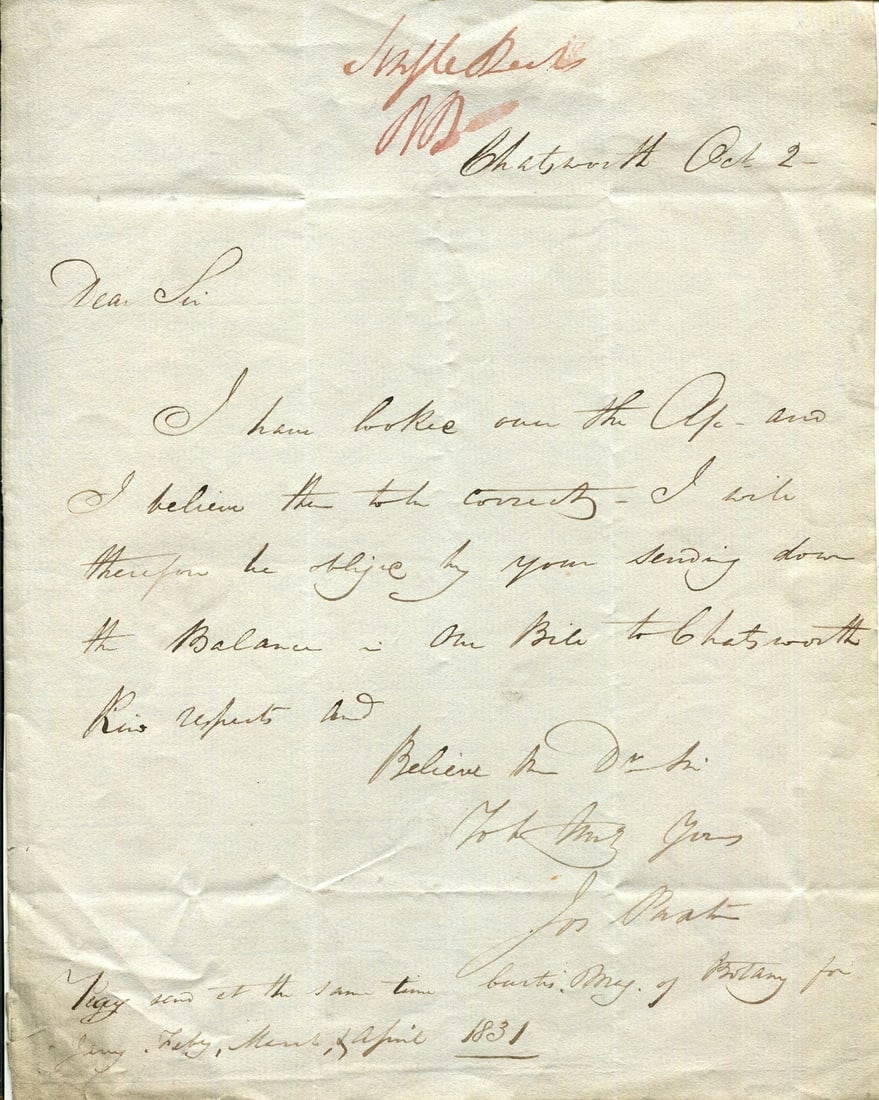 Chatsworth Oct 2-
Dear Sir
I have looked over the A/c - and
I believe them to be correct - I will
therefore be obliged by your sending down
the Balance in One Bill to Chatsworth
Kind respects and
Believe me Dr Sir
To be Yours
Jos Paxton
send at the same time Curtis. Mag. of Botany for
Jany. Feby, March, & April 1831